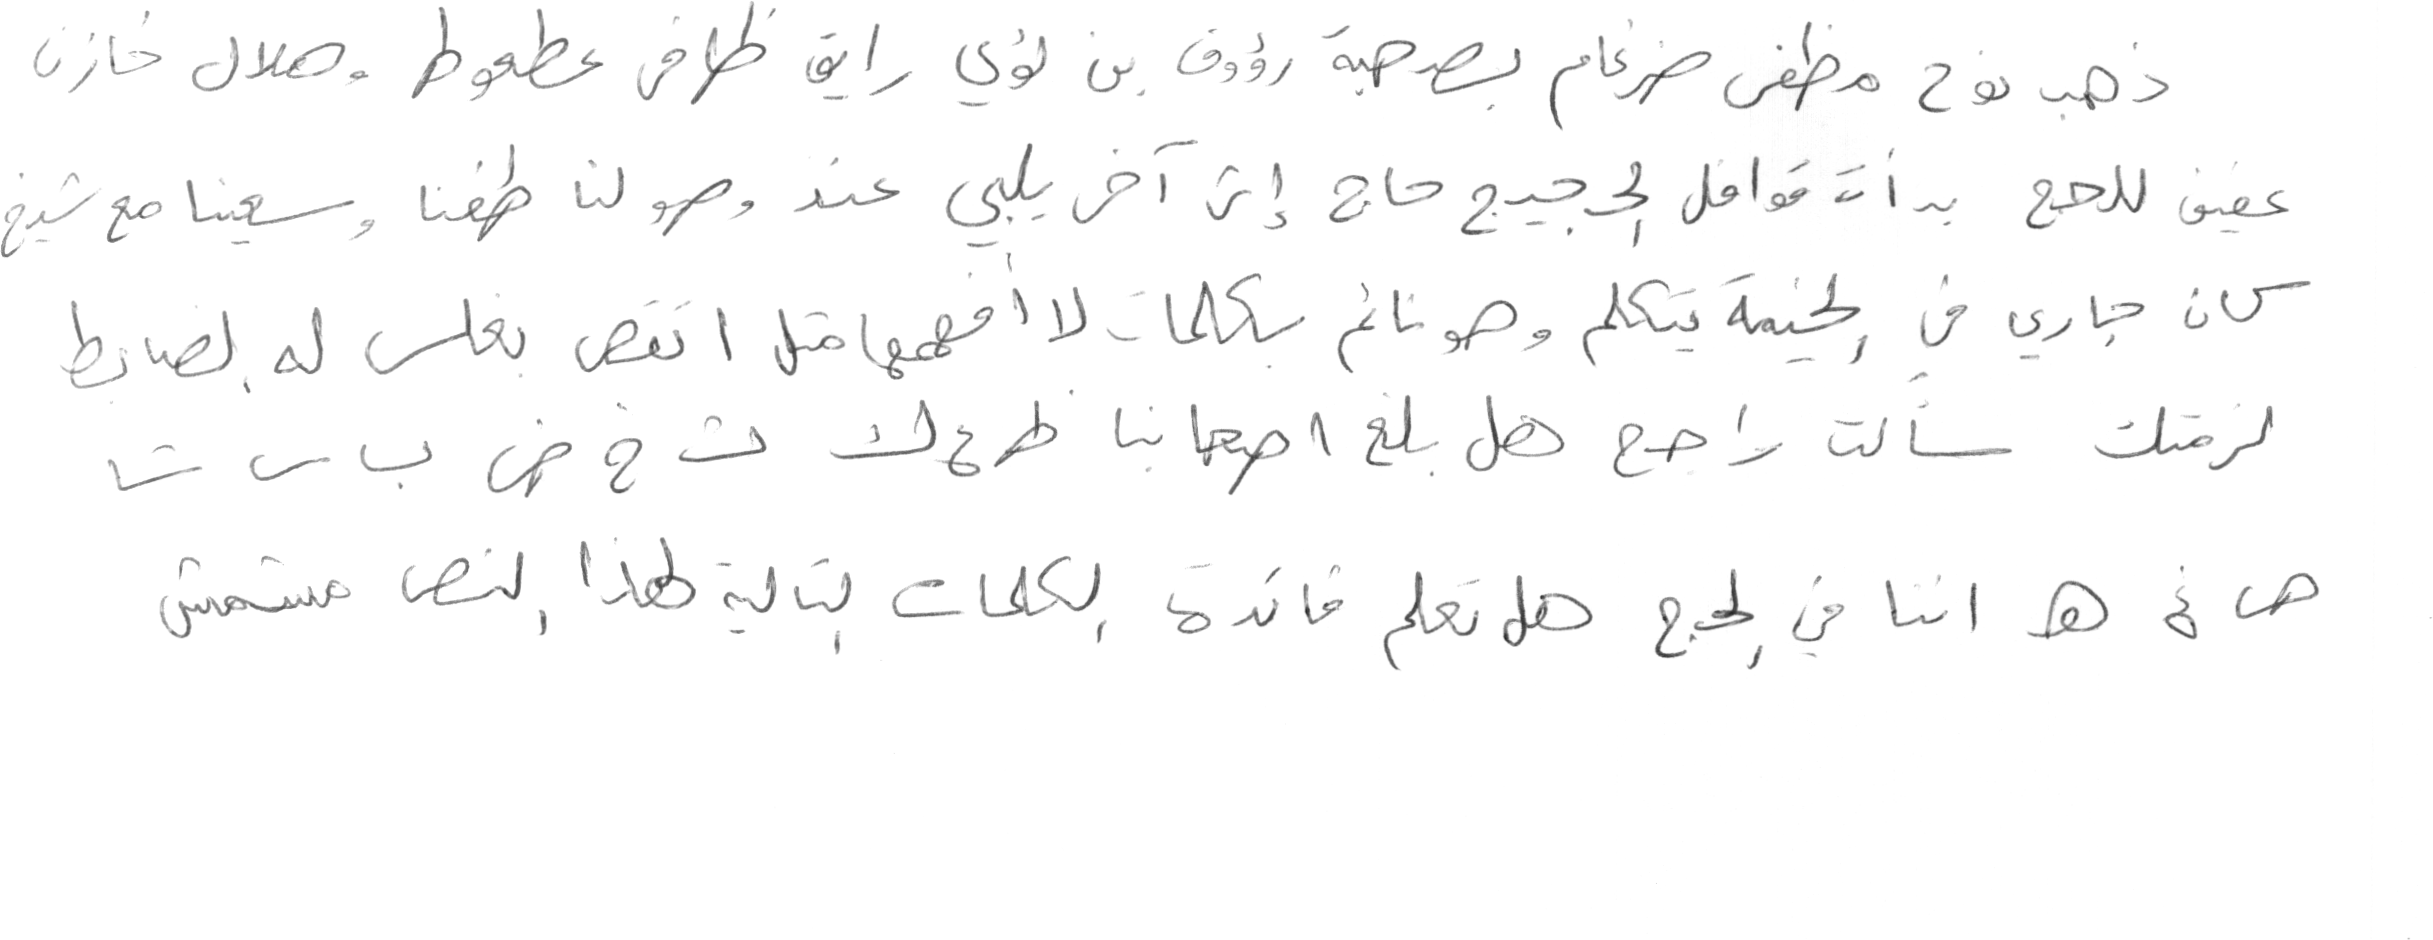 ذهب نوح مظفر ضرغام بصحبة رؤوف بن لؤي رايق ظافر عطعوط وهلال خازن
عفيف للحج بدأت قوافل الحجيج حاج إثر آخر يلبي عند وصولنا طفنا وسعينا مع شيخ
كان جاري في الخيمة يتكلم وهو نائم بكلمات لا أفهمها مثل انقض بغلس له الضابط
لزمتك سألت راجح هل بلغ اصحابنا ظرع ك ث خ ض ب س شا
ص غ ه اننا في الحج هل تعلم فائدة الكلمات التالية لهذا النص مستمش